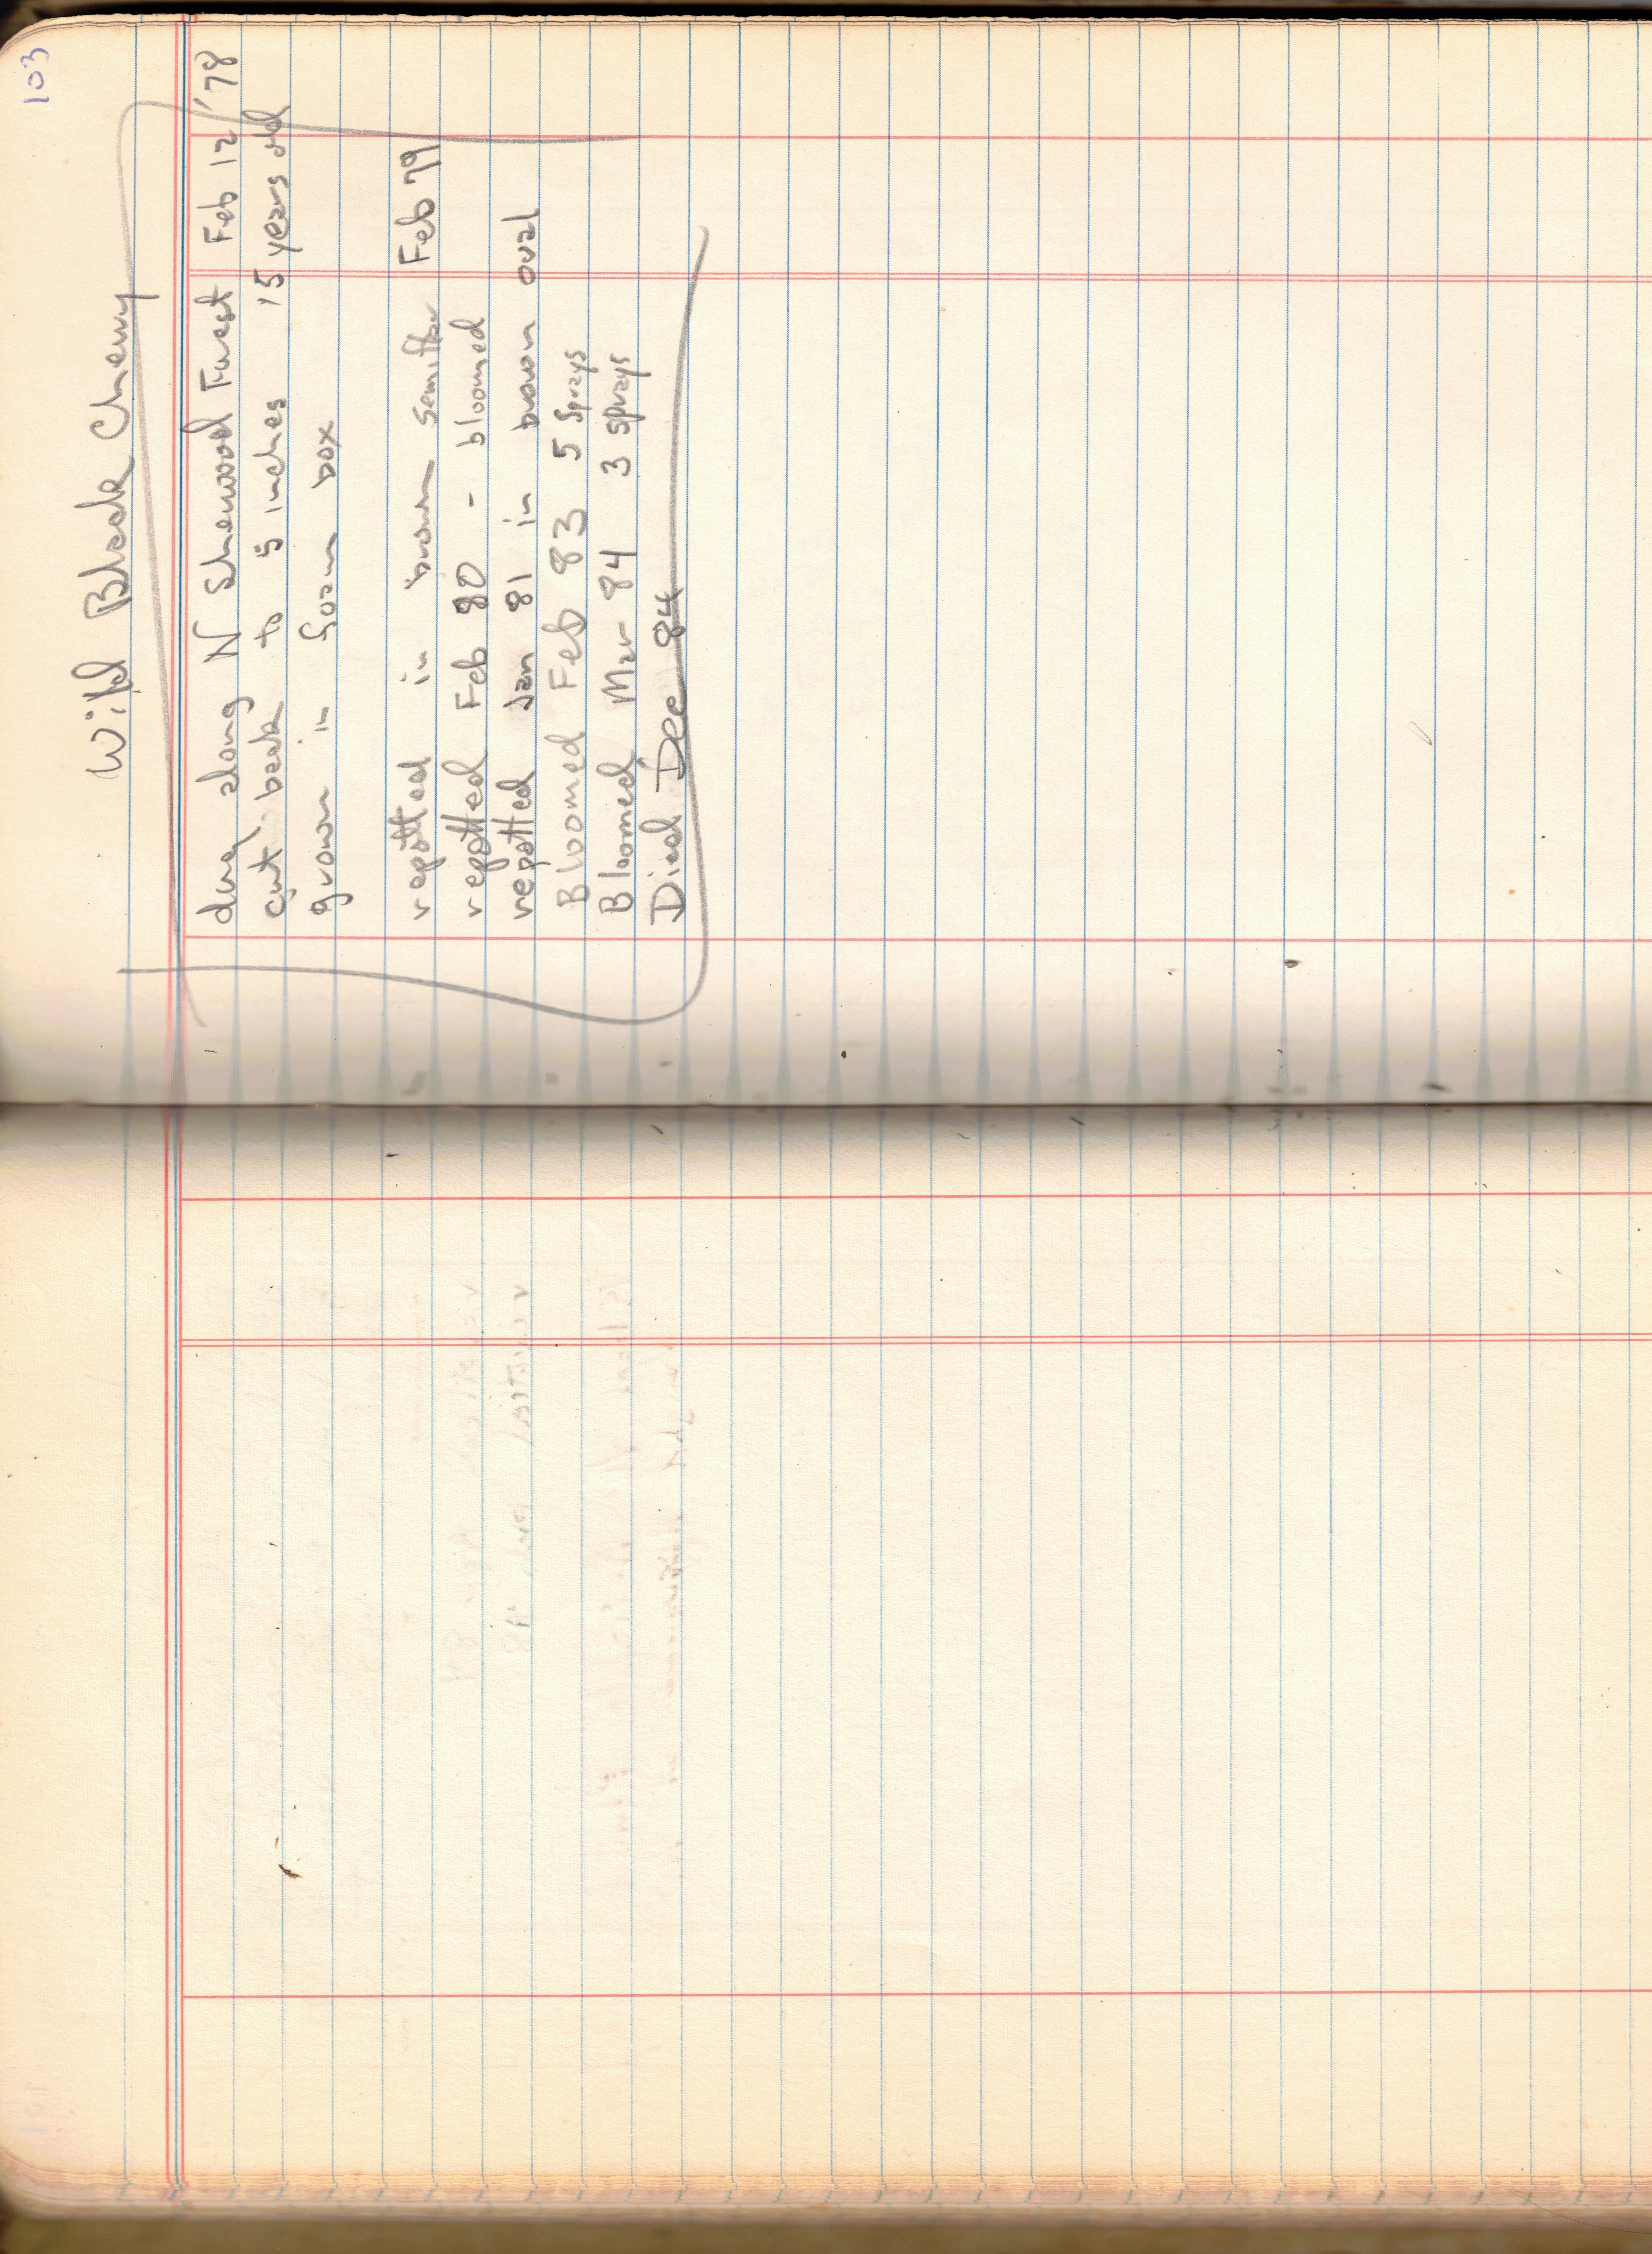 103
Wild Black Cherry
dug along N Sherwood Forest Feb 12 '78
cut back to 5 inches 15 years old
grown in foam box
repotted in brown Feb 79
repotted Feb 80 - bloomed
repotted Jan 81 in brown oval
Bloomed Feb 83 5 Sprays
Bloomed Mar 84 3 sprays
Died Dec 84